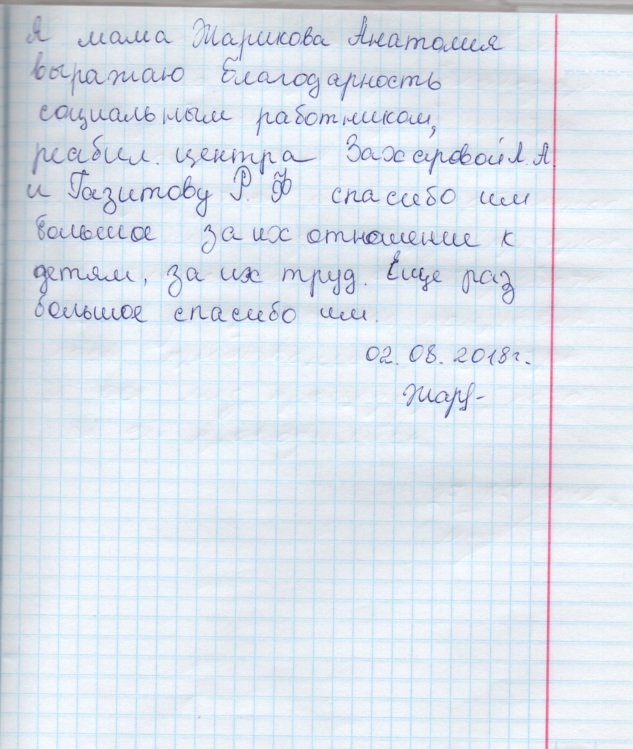 Я мама Жарикова Анатолия
выражаю благодарность
социальным работником,
реабил. центра Захаровой Л. А.
и Газитову Р. Ф спасибо им
большое за их отношение к
детям, за их труд. Еще раз
большое спасибо им.
02. 08. 2018г.